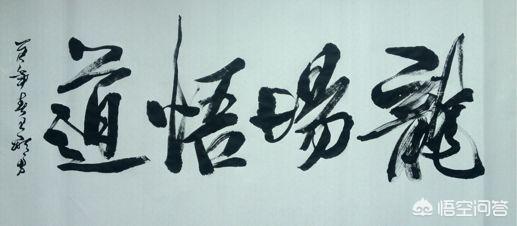 龍場悟道
悟空问答